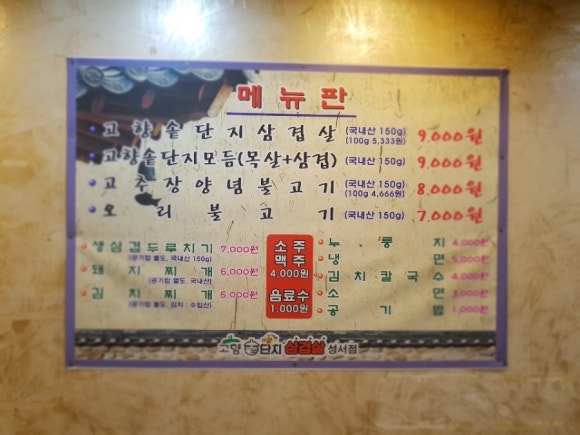 메뉴판
고향솥단지삼겹살 (국내산 150g) (100g 5,333원) 9,000원
고향솥단지모듬(목살+삼겹) (국내산 150g) 9,000원
고추장양념불고기 (국내산 150g) (100g 4,666원) 8,000원
오리불고기 (국내산 150g) 7,000원
생삼겹두루치기 7,000원
(공기밥 별도, 국내산 150g)
돼지찌개 5,000원
(공기밥 별도, 국내산)
김치찌개 5,000원
(공기밥 별도, 김치 : 수입산)
소주
맥주
4,000원
음료수
1,000원
누룽지 4,000원
냉면 5,000원
김치칼국수 4,000원
소면 3,000원
공기밥 1,000원
고향솥단지 삼겹살 성서점